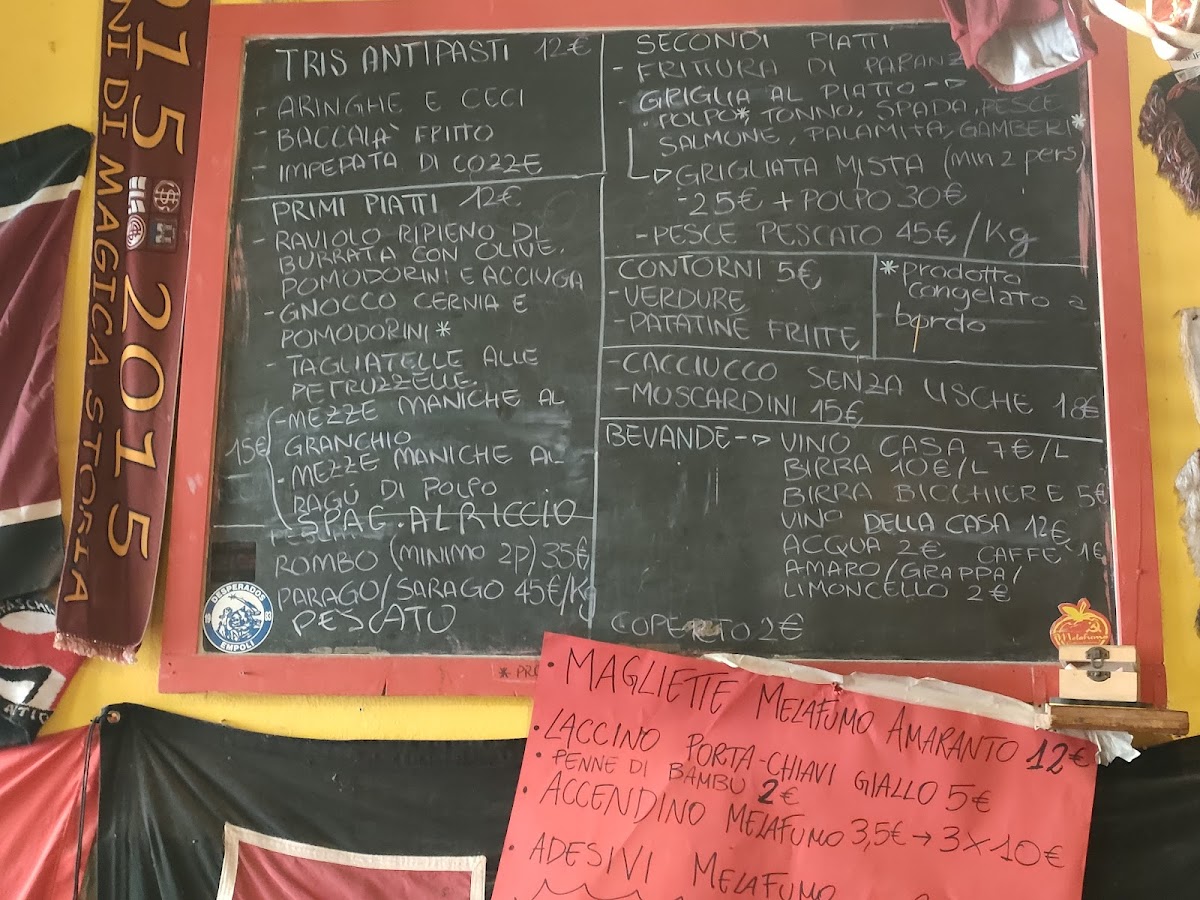 TRIS ANTIPASTI 12€
- ARINGHE E CECI
- BACCALA' FRITTO
- IMPEPATA DI COZZE
PRIMI PIATTI 12€
- RAVIOLO RIPIENO DI
BURRATA CON OLIVE,
POMODORINI E ACCIUGA
- GNOCCO CERNIA E
POMODORINI*
- TAGLIATELLE ALLE
PETRUZZELLE
- MEZZE MANICHE AL
GRANCHIO
- MEZZE MANICHE AL
RAGÙ DI POLPO
15€
SPAG. AL RICCIO
ROMBO (MINIMO 2P) 35€
PARAGO/SARAGO 45€/Kg
PESCATO
SECONDI PIATTI
- FRITTURA DI PARANZ
- GRIGLIA AL PIATTO
POLPO*, TONNO, SPADA, PESCE
SALMONE, PALAMITA, GAMBERI*
GRIGLIATA MISTA (min 2 pers)
- 25€ + POLPO 30€
- PESCE PESCATO 45€/Kg
CONTORNI 5€
- VERDURE
- PATATINE FRITTE
*prodotto
congelato a
bordo
- CACCIUCCO SENZA LISCHE 18€
- MOSCARDINI 15€
BEVANDE VINO CASA 7€/L
BIRRA 10€/L
BIRRA BICCHIERE 5€
VINO DELLA CASA 12€
ACQUA 2€ CAFFE' 1€
AMARO/GRAPPA/
LIMONCELLO 2€
COPERTO 2€
DESPERADOS
19 83
EMPOLI
Melafumo
* PRO
• MAGLIETTE MELAFUMO AMARANTO 12€
• LACCINO PORTA-CHIAVI GIALLO 5€
• PENNE DI BAMBÙ 2€
• ACCENDINO MELAFUMO 3,5€ → 3 x 10€
• ADESIVI MELAFUMO
915 2015
NI DI MAGICA STORIA